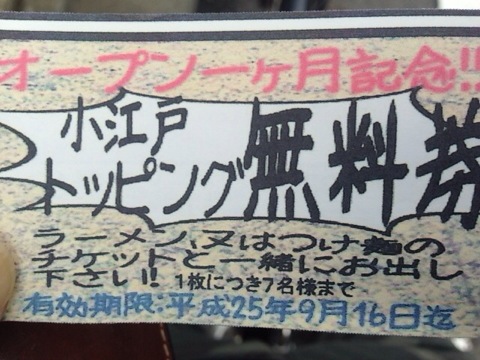 オープン一ヶ月記念!!
小江戸
トッピング無料券
ラーメン、又はつけ麺の
チケットと一緒にお出し
下さい!! 1枚につき7名様まで
有効期限:平成25年9月16日迄